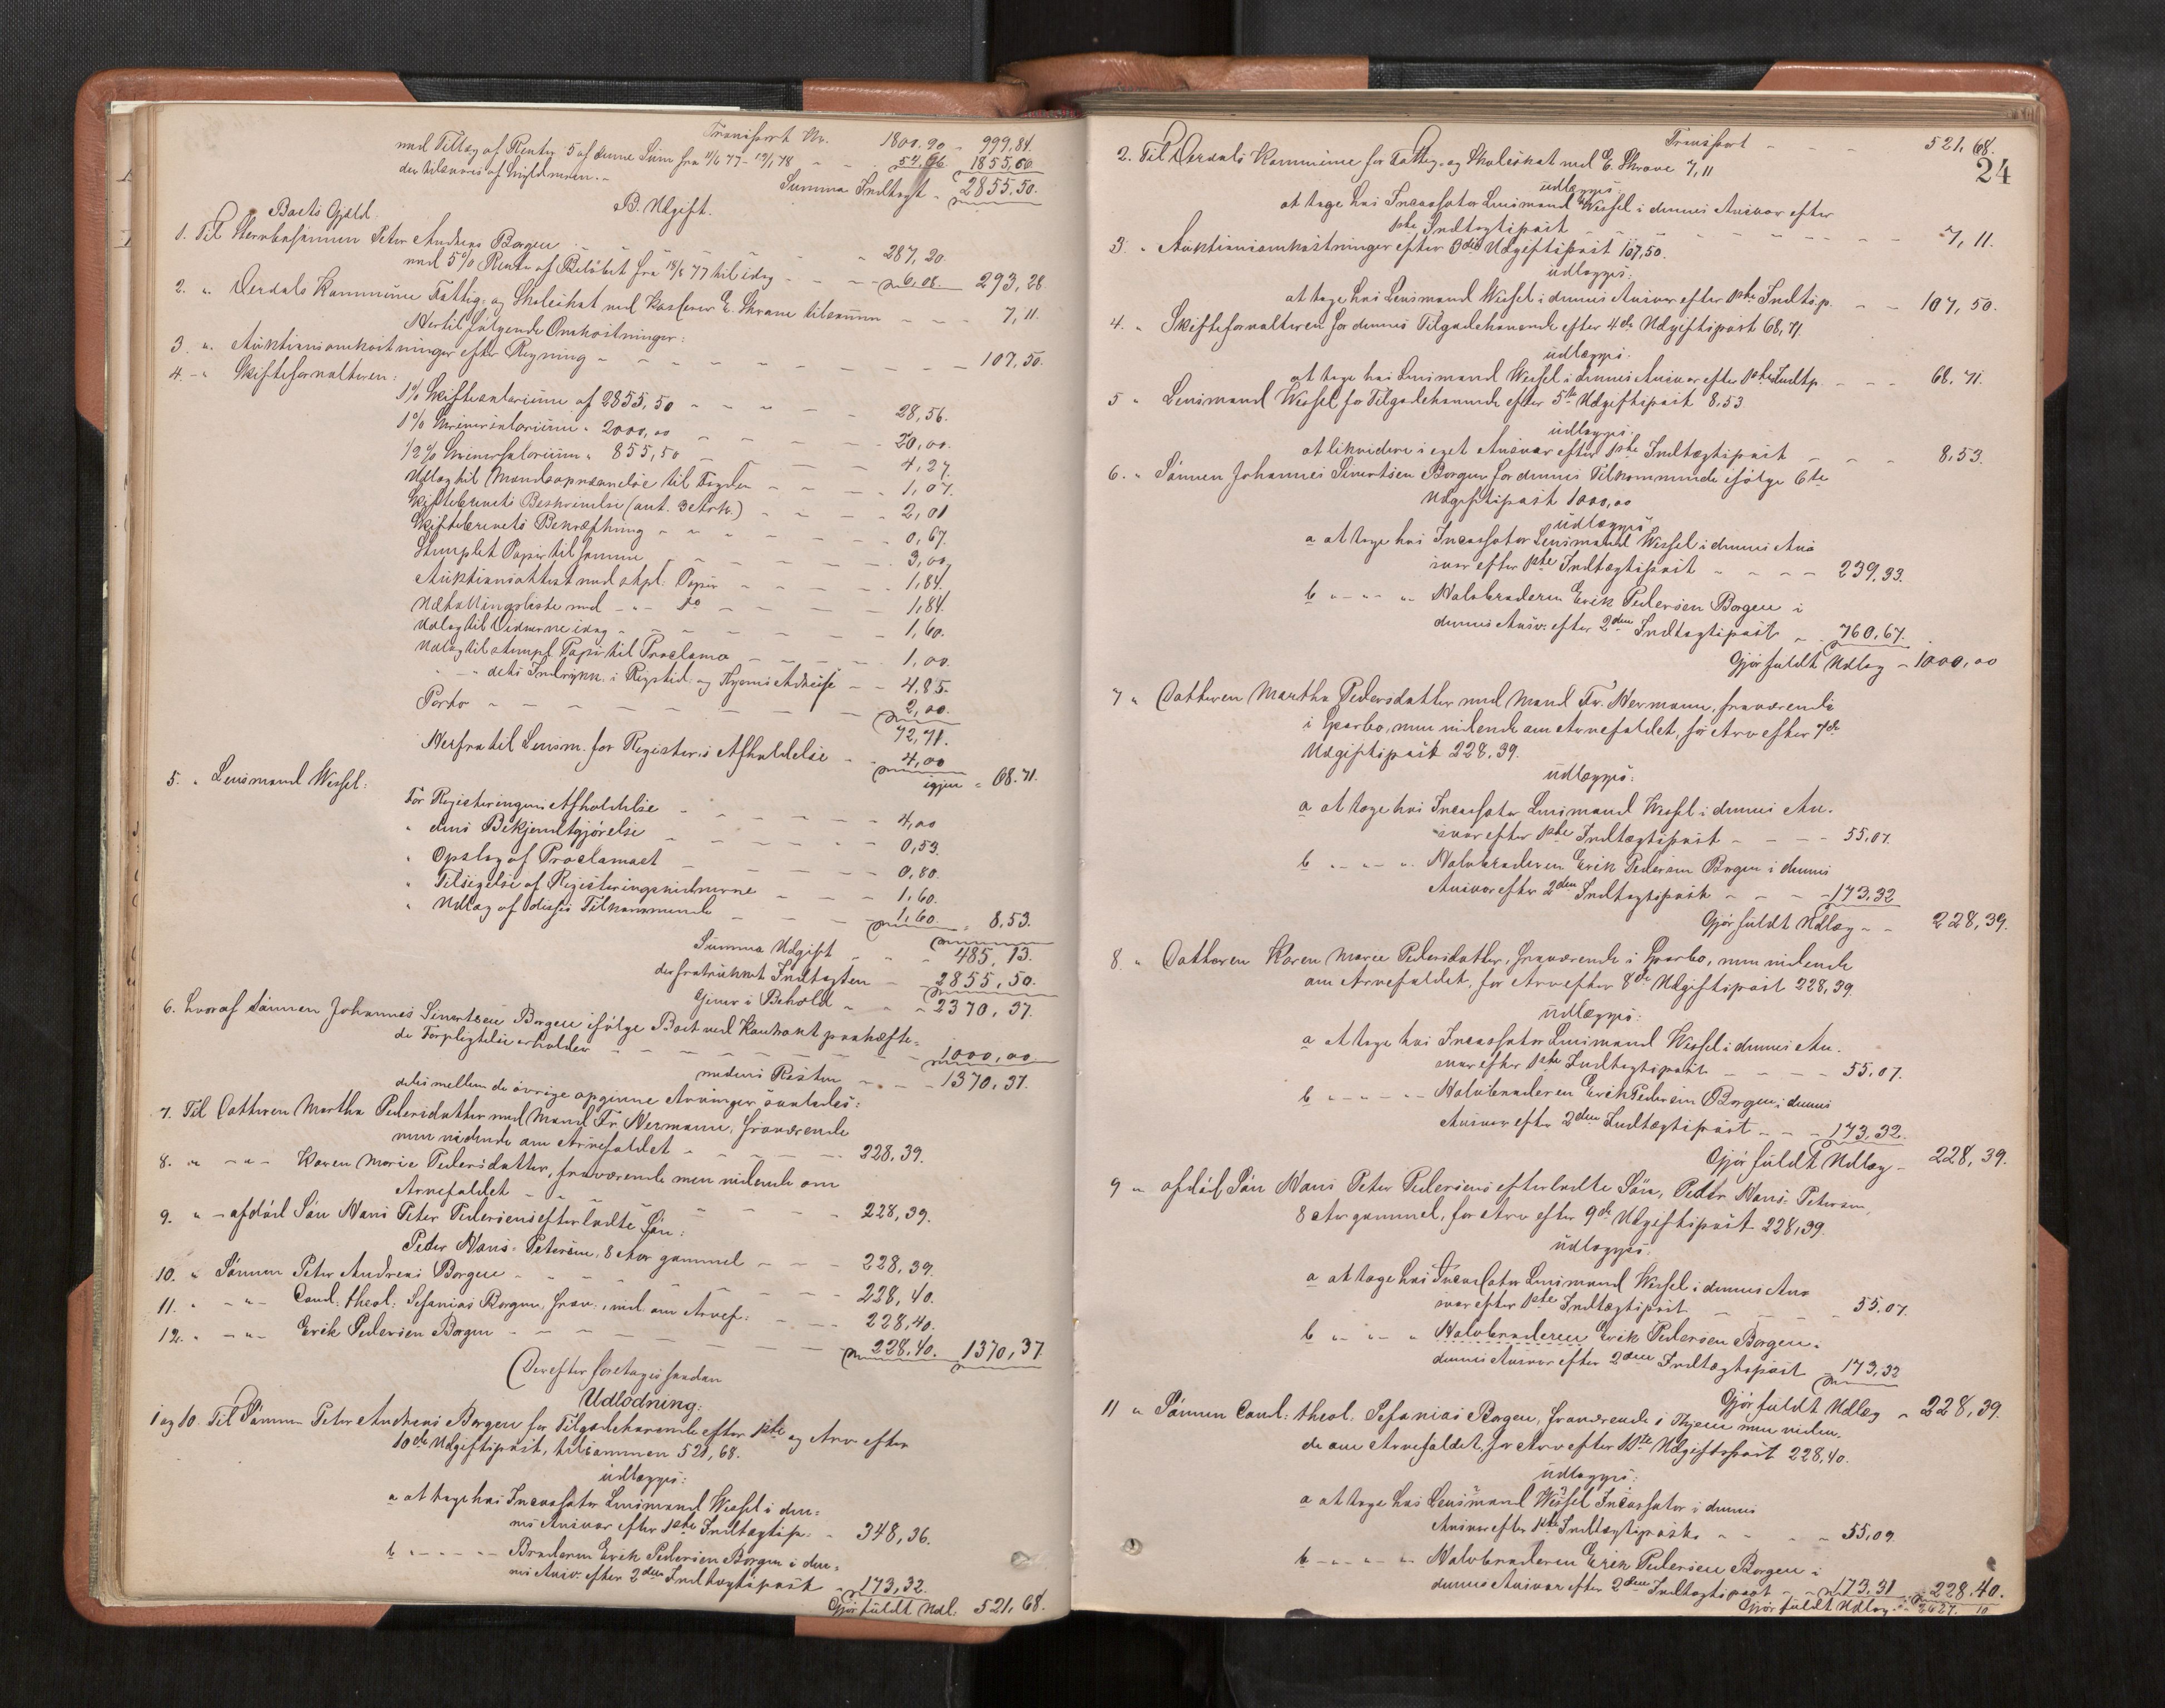 Transport Kr. 1800.90 - 999,84.
med Tillæg af Renter 5 af denne Sum fra 11/6 77 - 19/1 78 - - 54,66 1855,66
der tilsvares af
Summa Indtægt - 2855,50.
B. Udgift.
Boets Gjæld.
1. Til Stervbosønnen Peter Andreas Borgen - - 287,20.
med 5% Rente af Beløbet fra 18/8 77 til idag - - 6,08. 293,28
2. " Verdals Kommune Fattig- og Skoleskat ved Kasserer E. Skrove tilsammen - - - 7,11.
Hertil følgende Omkostninger:
3. " Auktionsomkostninger efter Regning - - - 107,50.
4. - " Skifteforvalteren:
1% Skiftesalarium af 2855,50 - - - 28,56.
1% Skriversalarium " 2000,00 - - - 20,00.
1/2 % Skriversalarium " 855,50 - - - 4,27.
Udlæg til Mandsopnævnelse til Fogden - - - 1,07.
Skiftebrevets Beskrivelse (ant. 3 Ark.) - - - 2,01
Skiftebrevets Bekræftning - - - 0,67.
Stemplet Papir til samme - - - 3,00
Auktionsattest med stpl. Papir - - - 1,84.
Udtællingsliste med - " - Do - - - 1,84.
Udlæg til Vidnerne idag - - - 1,60.
Udlæg til stempl. Papir til Proclama - - - 1,00.
" - " dets Indrykn. i Rigstid. og Thjems Adresse - - 4,85.
Porto - - - 2,00.
72,71.
Herfra til Lensm. for Register.s Afholdelse - - 4,00
igjen = 68.71.
5. " Lensmand Wessel:
For Registeringens Afholdelse - - - 4,00
" dens Bekjendtgjørelse - - - 0,53.
" Opslag af Proclamaet - - - 0,80.
" Tilsigelse af Registeringsvidnerne - - - 1,60.
" Udlæg af disses Tilkommende - - - 1,60. = 8,53.
Summa Udgift - - 485,13.
der fratrukket Indtægten - 2855,50.
Giver i Behold - - - 2370,37.
6. hvoraf Sønnen Johannes Sivertsen Borgen ifølge Boet ved Kontrakt paahæfte-
de Forpligtelse erholder - - - 1000,00.
medens Resten - - - 1370,37.
deles mellem de øvrige opgivne Arvinger saaledes:
7. Til Datteren Martha Pedersdatter med Mand Fr. Hermann, fraværende
men vidende om Arvefaldet - - - 228,39.
8. " - " - Karen Marie Pedersdatter, fraværende men vidende om
Arvefaldet - - - 228,39.
9. " - afdød Søn Hans Peter Pedersens efterladte Søn:
Peder Hans-Petersen, 8 Aar gammel - - - 228,39.
10. " Sønnen Peter Andreas Borgen - - - 228,40.
11. " - " - Cand: theol: Sefanias Borgen, frav:, vid. om Arvef: - - - 228,40.
12. " - " - Erik Pedersen Borgen - - - 228,40. 1370,37
Derefter foretages saadan
Udlodning:
1 og 10. Til Sønnen Peter Andreas Borgen for Tilgodehavende efter 1ste og Arv efter
10de Udgiftspost, tilsammen 521,68.
udlægges:
a at tage hos Incassator Lensmand Wessel i den-
nes Ansvar efter 1ste Indtægtsp. - 348,36.
b - - - - Broderen Erik Pedersen Borgen i den-
nes Ansv. efter 2den Indtægtspost - 173,32.
Gjør fuldt Udl. 521,68.
24
Transport - - - 521,68.
2. Til Verdals Kommune for Fattig- og Skoleskat ved E. Skrove 7,11
udlægges:
at tage hos Incassator Lensmand Wessel i dennes Ansvar efter
1ste Indtægtspost - - - 7,11.
3. " Auktionsomkostninger efter 3die Udgiftspost 107,50.
udlægges:
at tage hos Lensmand Wessel i dennes Ansvar efter 1ste Indtsp. - - 107,50.
4. " Skifteforvalteren for dennes Tilgodehavende efter 4de Udgiftspost 68,71.
udlægges:
at tage hos Lensmand Wessel i dennes Ansvar efter 1ste Indtp. - - - 68,71.
5 " Lensmand Wessel for Tilgodehavende efter 5te Udgiftspost 8,53
udlægges:
at likvidere i eget Ansvar efter 1ste Indtægtspost - - - 8,53.
6. " Sønnen Johannes Sivertsen Borgen for dennes Tilkommende ifølge 6te
Udgiftspost 1000,00
udlægges
a at tage hos Incassator Lensmand Wessel i dennes Ans
svar efter 1ste Indtægtspost - - - 239,33.
b " - " - " Halvbroderen Erik Pedersen Borgen i
dennes Ansv: efter 2den Indtægtspost - 760,67.
Gjør fuldt Udlæg - 1000,00
7 " Datteren Martha Pedersdatter med Mand Fr. Hermann, fraværende
i Sparbo, men vidende om Arvefaldet, for Arv efter 7de
Udgiftspost 228,39.
udlægges:
a at tage hos Incassator Lensmand Wessel i dennes An-
svar efter 1ste Indtægtspost - - - 55,07.
b " - " - " Halvbroderen Erik Pedersen Borgen i dennes
Ansvar efter 2den Indtægtspost - - - 173,32
Gjør fuldt Udlæg - - 228,39.
8. " Datteren Karen Marie Pedersdatter, fraværende i Sparbo, men vidende
om Arvefaldet, for Arv efter 8de Udgiftspost 228,39.
udlægges:
a at tage hos Incassator Lensmand Wessel i dennes An-
svar efter 1ste Indtægtspost - - - 55,07.
b " - " - " Halvbroderen Erik Pedersen Borgen i dennes
Ansvar efter 2den Indtægtspost - - - 173,32.
Gjør fuldt Udlæg - 228,39.
9 " afdød Søn Hans Peter Pedersens efterladte Søn, Peder Hans-Petersen,
8 Aar gammel, for Arv efter 9de Udgiftspost 228,39.
udlægges.
a at tage hos Incassator Lensmand Wessel i dennes Ans
svar efter 1ste Indtægtspost - - - 55,07.
b " - " - " Halvbroderen Erik Pedersen Borgen i
dennes Ansvar efter 2den Indtægtspost - 173,32
Gjør fuldt Udlæg - 228,39.
11 " Sønnen Cand: theol. Sefanias Borgen, fraværende i Thjem men viden-
de om Arvefaldet, for Arv efter 11te Udgiftspost 228,40.
udlægges:
a at tage hos Lensmand Wessel Incassator i dennes
Ansvar efter 1ste Indtægtspost - - - 55,09
b - " - " - Halvbroderen Erik Pedersen Borgen i
dennes Ansvar efter 2den Indtægtspost - - 173,31
Gjør fuldt Udlæg - - 228.40.
2627. 10